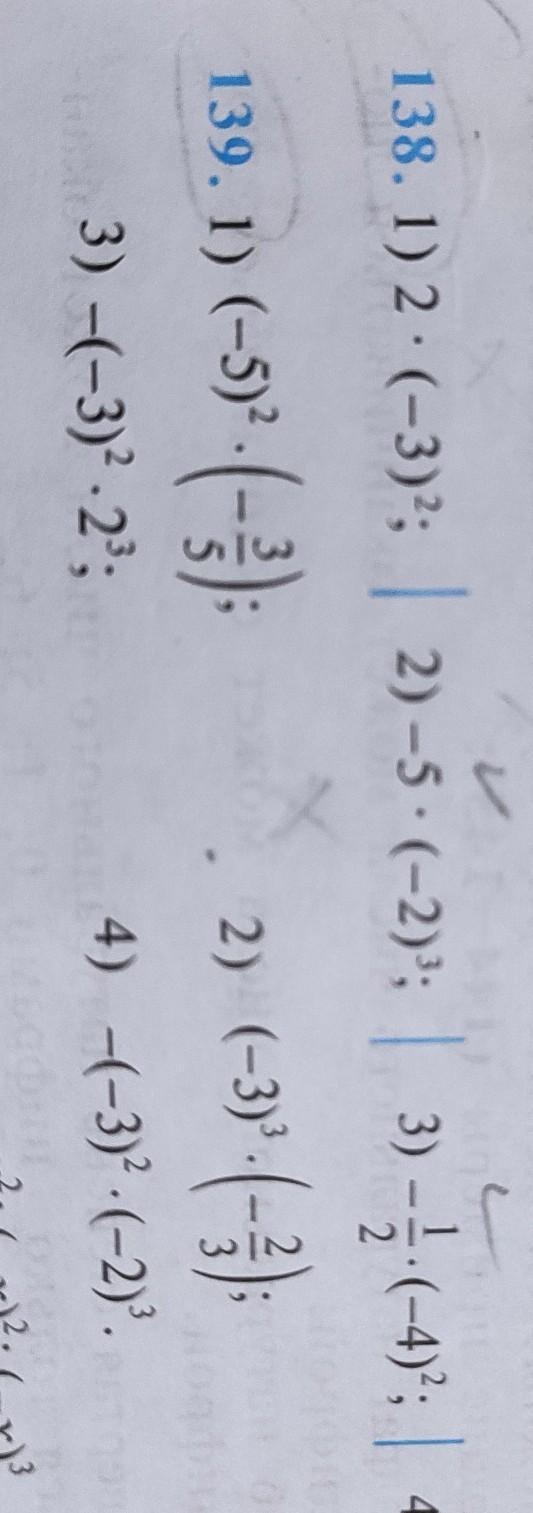 138. 1) 2 · (−3)²; | 2) −5 · (−2)³; | 3) −1/2 · (−4)²; | 4
139. 1) (−5)² · (−3/5); 2) (−3)³ · (−2/3);
3) −(−3)² · 2³; 4) −(−3)² · (−2)³.